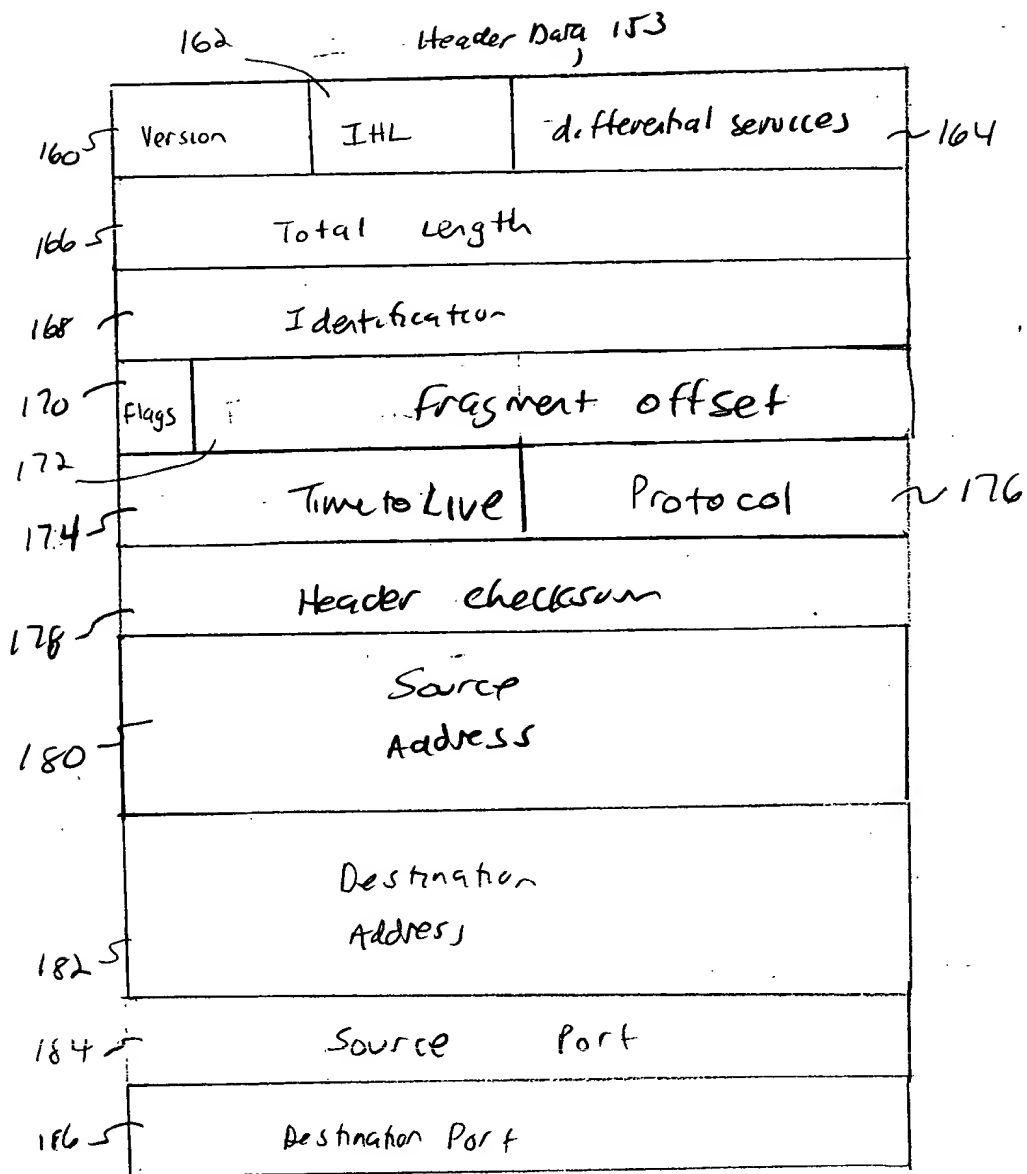 162
Header Data 153
160 Version IHL differential services 164
166 Total Length
168 Identification
170 Flags Fragment offset
172
174 Time to Live Protocol 176
178 Header checksum
180 Source
Address
Destination
182 Address
184 Source Port
186 Destination Port